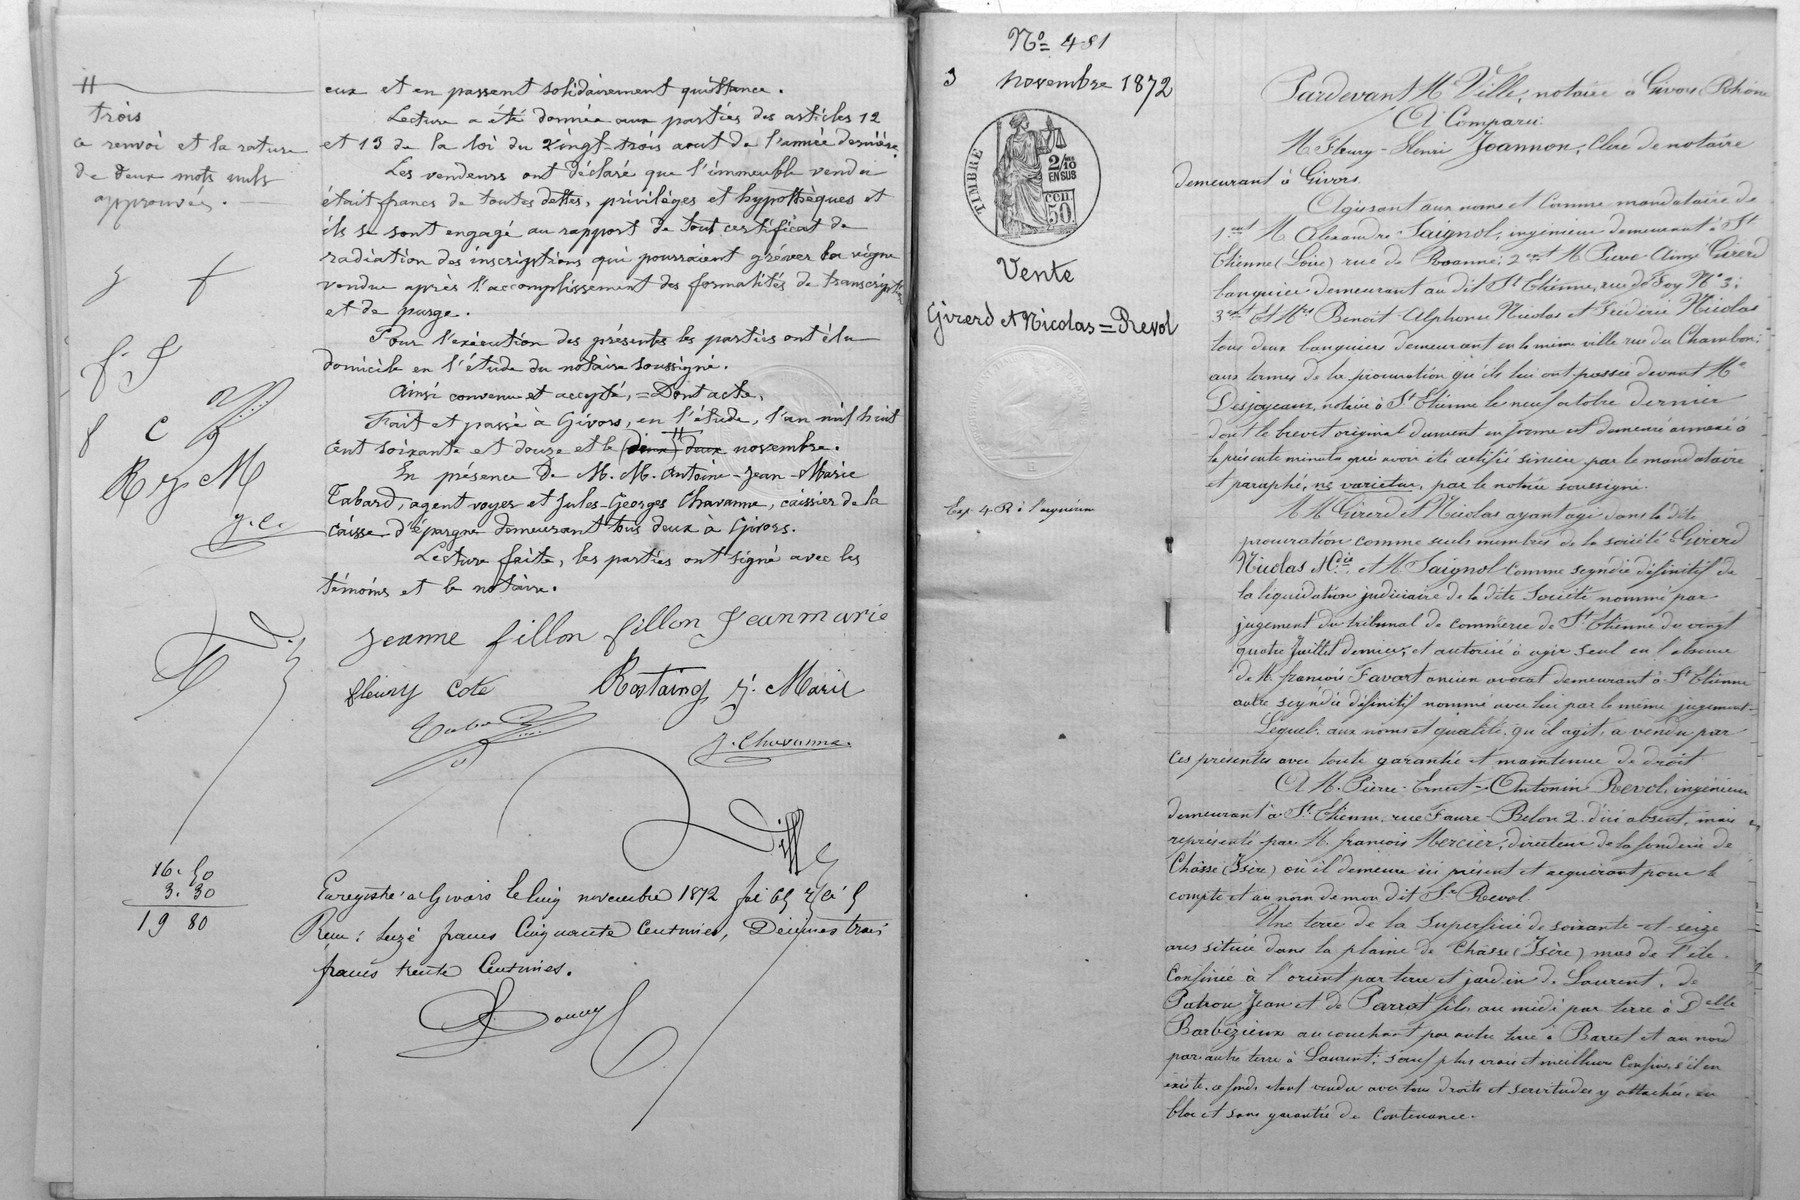 H
trois
ce renvoi et la rature
de deux mots nuls
approuvés.
f. J
f C
R J M
g. c.
16. 50
3. 30
19 80
eux et en passent solidairement quittance.
Lecture a été donnée aux parties des articles 12
et 13 de la loi du vingt-trois aout de l'année dernière.
Les vendeurs ont déclaré que l'immeuble vendu
était franc de toutes dettes, privilèges et hypothèques et
ils se sont engagé au rapport de tout certificat de
radiation des inscriptions qui pourraient gréver la vigne
vendue après l'accomplissement des formalités de transcription
et de purge.
Pour l'exécution des présentes les parties ont élu
domicile en l'étude du notaire soussigné.
Ainsi convenu et accepté, = Dont acte.
Fait et passé à Givors, en l'étude, l'an mil huit
cent soixante et douze et le deux novembre.
En présence de M. M. Antoine-Jean-Marie
Tabard, agent voyer et Jules-Georges Chavanne, caissier de la
caisse d'épargne demeurant tous deux à Givors.
Lecture faite, les parties ont signé avec les
témoins et le notaire.
Jeanne fillon fillon Jeanmarie
fleury cote Rostaing J. Marie
J. Chavanne
Enregistré à Givors le cinq novembre 1872
Reçu: Seize francs Cinquante Centimes, Décimes trois
francs trente Centimes.
No 481
3 novembre 1872
TIMBRE
2/10
EN SUS
50
Vente
Girerd et Nicolas = Revol
Exp. 4 R à l'acquéreur
Pardevant Me Ville, notaire à Givors, Rhône
A Comparu:
M. Fleury-Henri Joannon, Clerc de notaire
demeurant à Givors
Agissant aux noms et Comme mandataire de
1ent M Alexandre Saignol, ingénieur demeurant à St
Etienne (Loire) rue de Roanne; 2ent M Pierre Aimé Girerd
banquier demeurant au dit St Etienne, rue de Foy No 3;
3ent Et Mrs Benoît Alphonse Nicolas et Frédéric Nicolas
tous deux banquiers demeurant en la même ville rue du Chambon;
aux termes de la procuration qu'ils lui ont passée devant Me
Desjoyeaux, notaire à St Etienne le neuf octobre dernier
dont le brevet original dument en forme est demeuré annexé à
la présente minute après avoir été certifié sincère par le mandataire
et paraphé, ne varietur, par le notaire soussigné.
M M. Girerd et Nicolas ayant agi dans la dite
procuration comme seuls membres de la société Girerd
Nicolas & Cie, et M. Saignol comme syndic définitif de
la liquidation judiciaire de la dite Société nommé par
jugement du tribunal de commerce de St Etienne du vingt
quatre Juillet dernier, et autorisé à agir seul en l'absence
de M. françois Favart ancien avocat demeurant à St Etienne
autre syndic définitif nommé avec lui par le même jugement
Lequel, aux noms et qualité qu'il agit, a vendu par
ces présentes avec toute garantie et maintenue de droit
A M. Pierre-Ernest-Antonin Revol, ingénieur
demeurant à St Etienne, rue Faure-Belon 2. d'ici absent, mais
représenté par M. françois Mercier, directeur de la fonderie de
Chasse (Isère) où il demeure ici présent et acquérant pour le
compte et au nom de mon dit Sr Revol
Une terre de la Superficie de soixante-et-seize
ares située dans la plaine de Chasse (Isère) mas de l'ile.
Confinée à l'orient par terre et jardin de Laurent, de
Patrou Jean et de Parrat fils, au midi par terre à Delle
Barbézieux au couchant par autre terre à Barret et au nord
par autre terre à Laurent; sauf plus vrais et meilleurs Confins, s'il en
existe, ce fonds étant vendu avec tous droits et servitudes y attachés, en
bloc et sans garantie de Contenance.